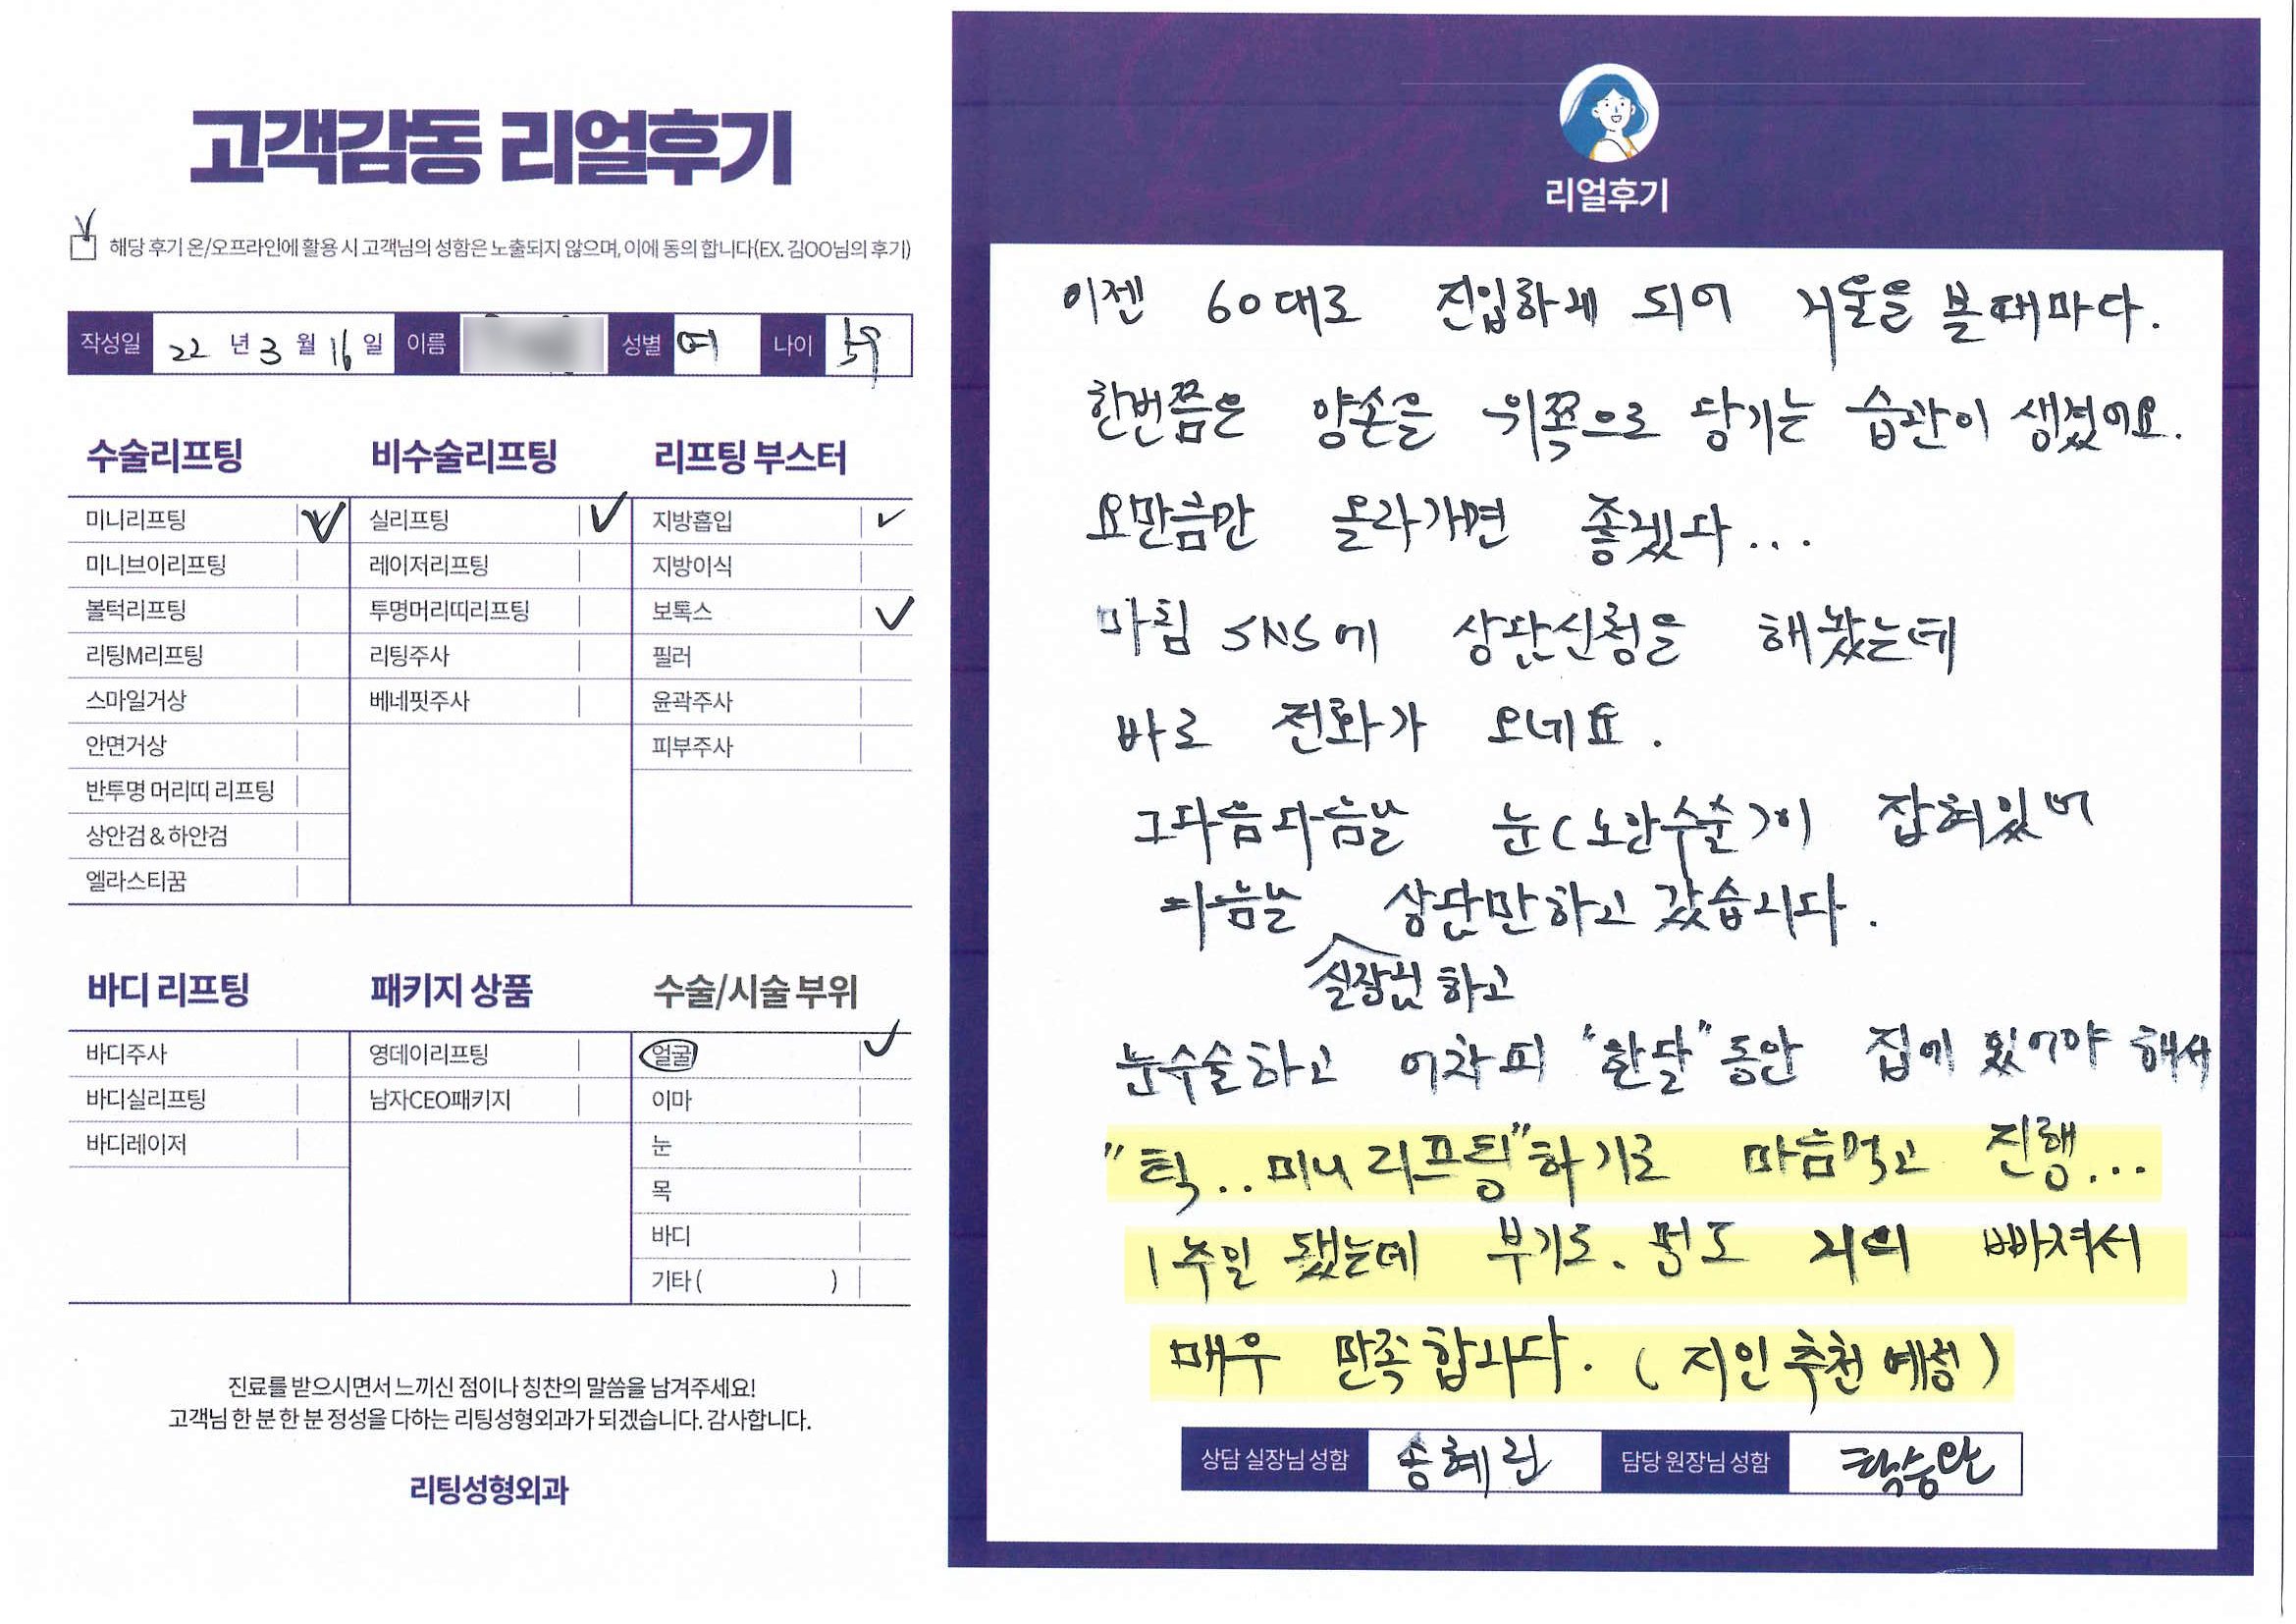 고객감동 리얼후기
해당 후기 온/오프라인에 활용 시 고객님의 성함은 노출되지 않으며, 이에 동의 합니다(EX. 김OO님의 후기)
작성일 22 년 3 월 16 일 이름 성별 여 나이 59
수술리프팅
미니리프팅
미니브이리프팅
볼턱리프팅
리팅M리프팅
스마일거상
안면거상
반투명 머리띠 리프팅
상안검 & 하안검
엘라스티꿈
비수술리프팅
실리프팅
레이저리프팅
투명머리띠리프팅
리팅주사
베네핏주사
리프팅 부스터
지방흡입
지방이식
보톡스
필러
윤곽주사
피부주사
바디 리프팅
바디주사
바디실리프팅
바디레이저
패키지 상품
영데이리프팅
남자CEO패키지
수술/시술 부위
얼굴
이마
눈
목
바디
기타 ( )
진료를 받으시면서 느끼신 점이나 칭찬의 말씀을 남겨주세요!
고객님 한 분 한 분 정성을 다하는 리팅성형외과가 되겠습니다. 감사합니다.
리팅성형외과
리얼후기
이젠 60대로 진입하게 되어 거울을 볼때마다.
한번쯤은 양손을 위쪽으로 당기는 습관이 생겼어요.
요만큼만 올라가면 좋겠다...
마침 SNS에 상담신청을 해놨는데
바로 전화가 오네요.
그다음다음날 눈(노안수술)이 잡혀있어
다음날 상담만하고 갔습니다.
실장님 하고
눈수술하고 어차피 "한달" 동안 집에 있어야 해서
"턱.. 미니 리프팅"하기로 마음먹고 진행...
1주일 됐는데 부기도. 멍도 거의 빠져서
매우 만족합니다. (지인추천 예정)
상담 실장님 성함 송혜린 담당 원장님 성함 탁승안